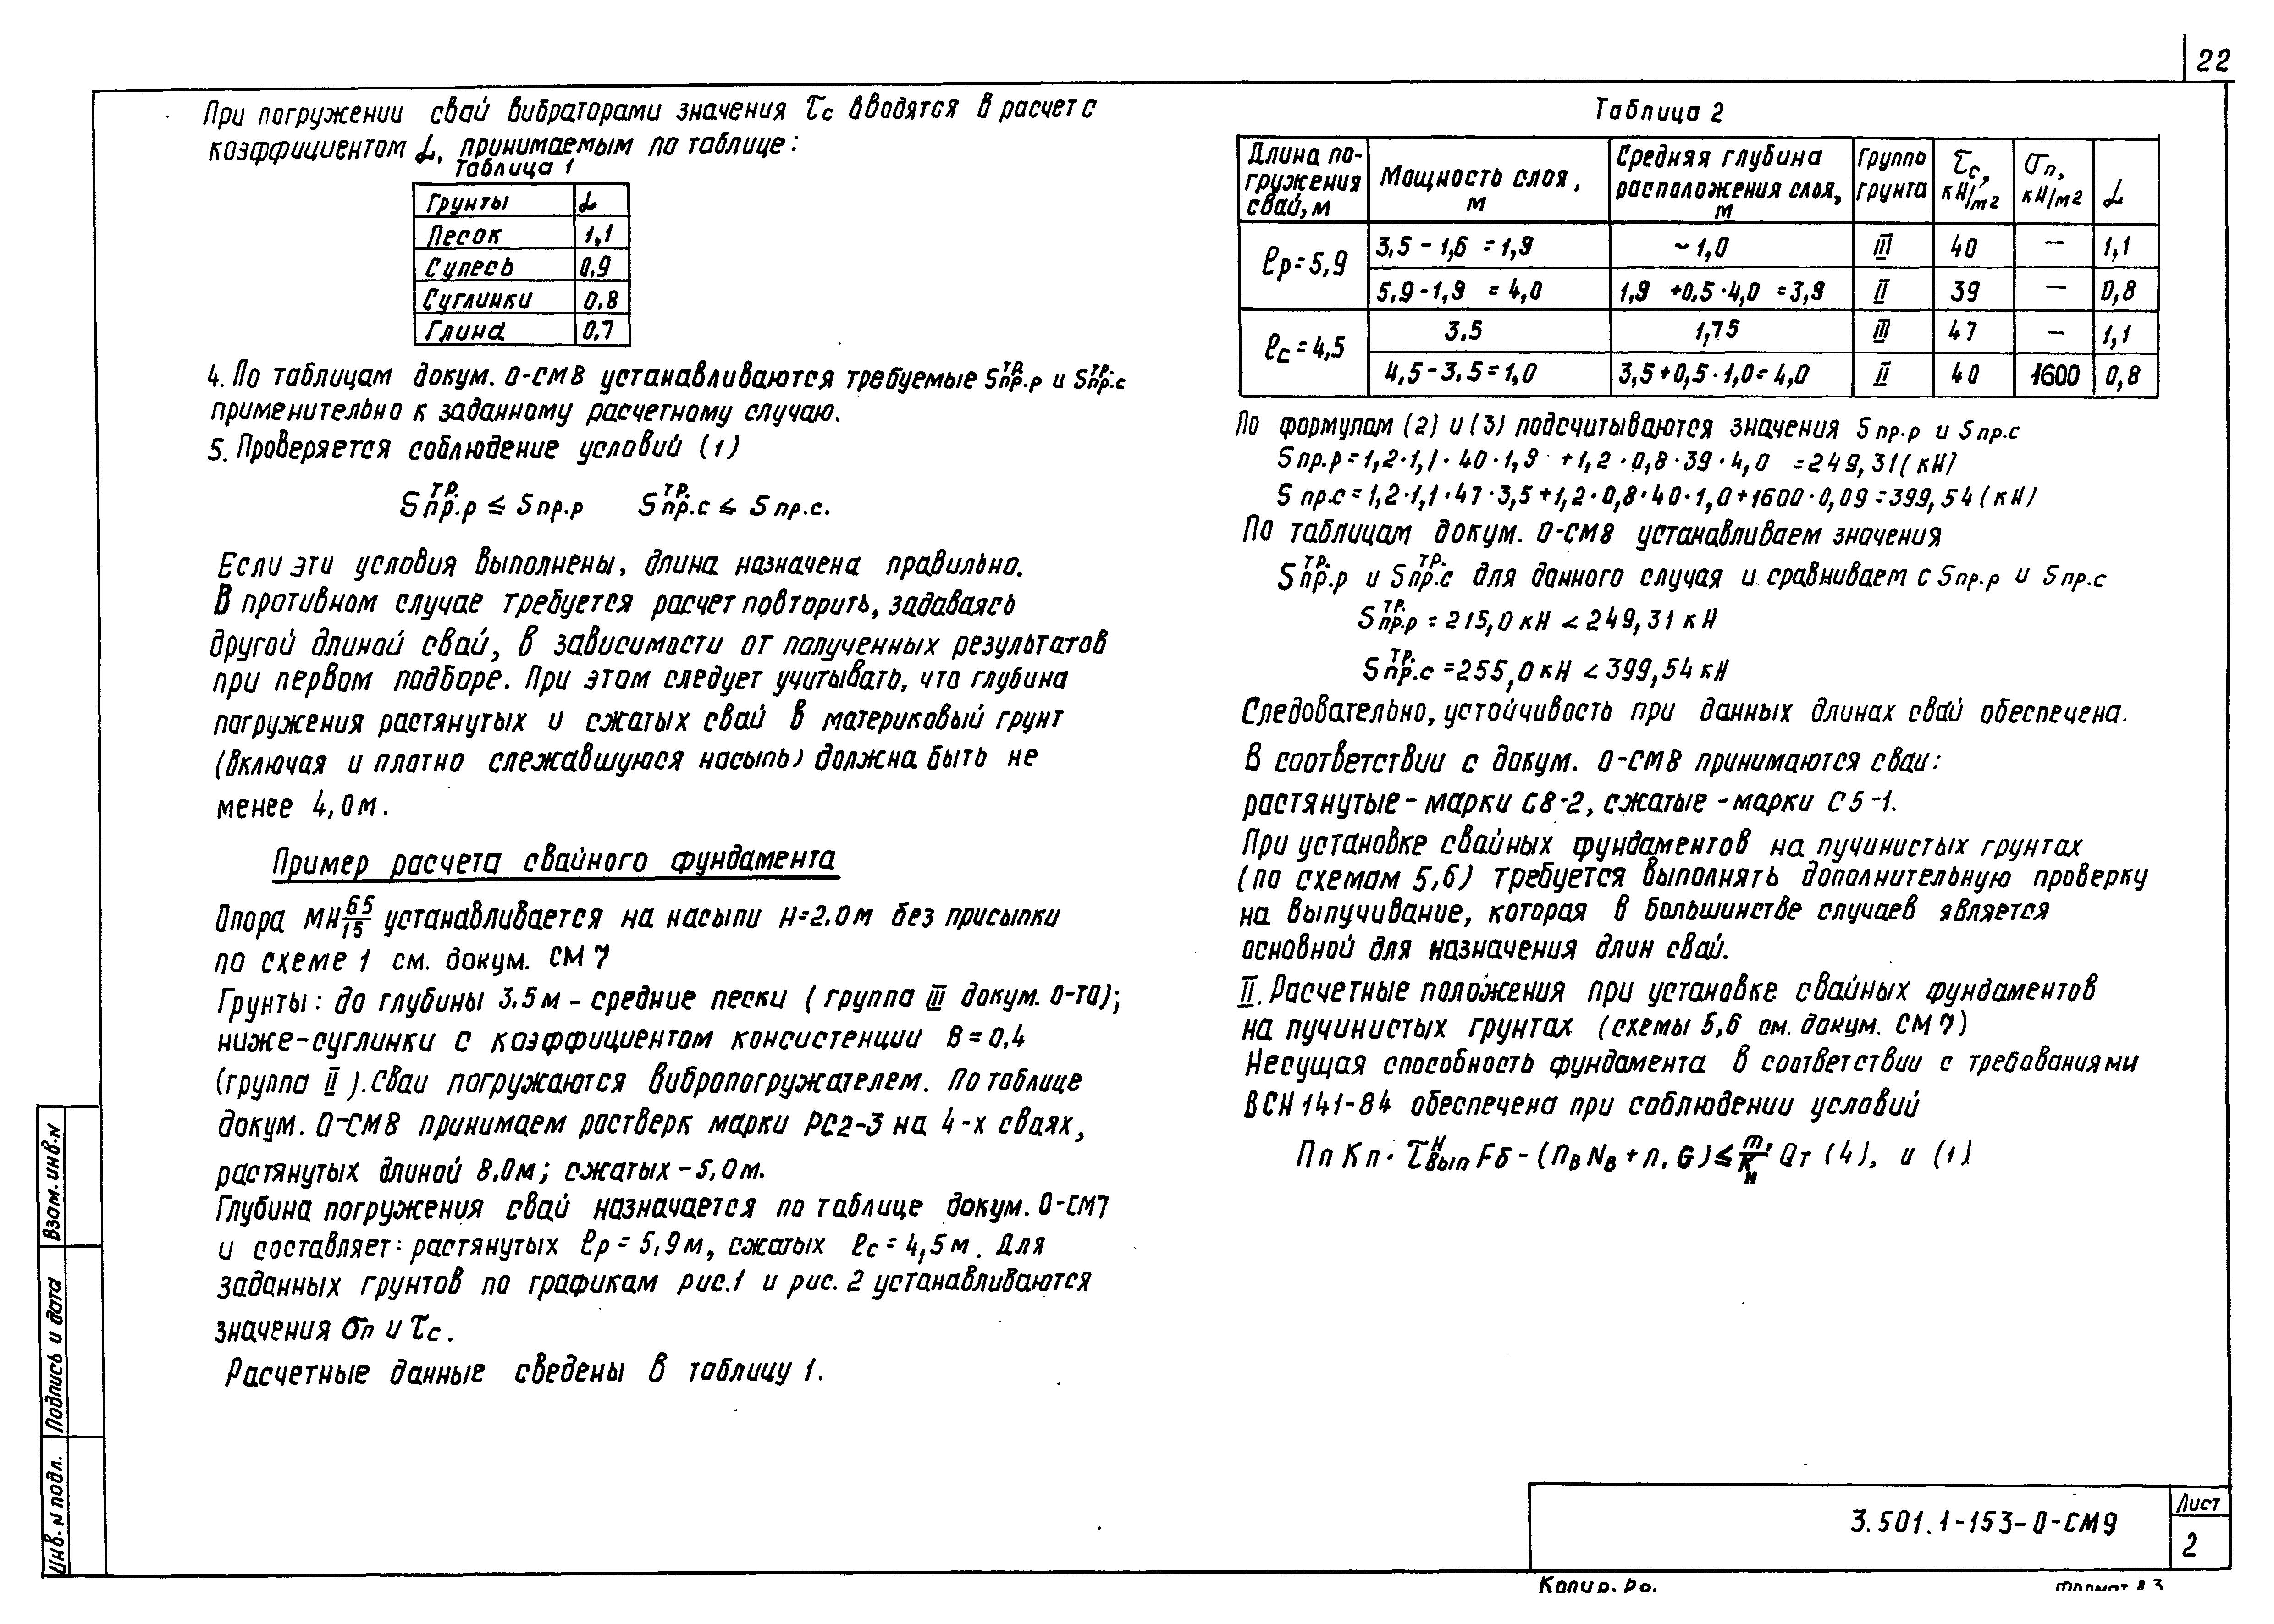 22
При погружении свай вибраторами значения τс вводятся в расчет с
коэффициентом α, принимаемым по таблице:
Таблица 1
Грунты α
Песок 1,1
Супесь 0,9
Суглинки 0,8
Глина 0,7
4. По таблицам докум. 0-СМ8 устанавливаются требуемые Sпр.р^тр. и Sпр.с^тр.
применительно к заданному расчетному случаю.
5. Проверяется соблюдение условий (1)
Sпр.р^тр. ≤ Sпр.р Sпр.с^тр. ≤ Sпр.с.
Если эти условия выполнены, длина назначена правильно.
В противном случае требуется расчет повторить, задаваясь
другой длиной свай, в зависимости от полученных результатов
при первом подборе. При этом следует учитывать, что глубина
погружения растянутых и сжатых свай в материковый грунт
(включая и плотно слежавшуюся насыпь) должна быть не
менее 4,0м.
Пример расчета свайного фундамента
Опора МН 65/15 устанавливается на насыпи Н=2.0м без присыпки
по схеме 1 см. докум. СМ7
Грунты: до глубины 3.5м - средние пески (группа III докум. 0-ТО);
ниже-суглинки с коэффициентом консистенции В=0,4
(группа II). Сваи погружаются вибропогружателем. По таблице
докум. 0-СМ8 принимаем ростверк марки РС2-3 на 4-х сваях,
растянутых длиной 8.0м; сжатых-5,0м.
Глубина погружения свай назначается по таблице докум. 0-СМ7
и составляет: растянутых ℓр = 5,9м, сжатых ℓс = 4,5м. Для
заданных грунтов по графикам рис.1 и рис. 2 устанавливаются
значения σп и τс.
Расчетные данные сведены в таблицу 1.
Таблица 2
Длина по-гружения свай, м Мощность слоя, м Средняя глубина расположения слоя, м Группа грунта τс, кН/м2 σп, кН/м2 α
ℓр=5,9 3,5 - 1,6 = 1,9 ~1,0 III 40 — 1,1
5,9-1,9 = 4,0 1,9 +0,5·4,0 =3,9 II 39 — 0,8
ℓс=4,5 3,5 1,75 III 47 — 1,1
4,5-3,5=1,0 3,5+0,5·1,0=4,0 II 40 1600 0,8
По формулам (2) и (3) подсчитываются значения Sпр.р и Sпр.с
Sпр.р=1,2·1,1·40·1,9 +1,2·0,8·39·4,0 =249,31(кН)
Sпр.с=1,2·1,1·47·3,5+1,2·0,8·40·1,0+1600·0,09=399,54(кН)
По таблицам докум. 0-СМ8 устанавливаем значения
Sпр.р^тр. и Sпр.с^тр. для данного случая и сравниваем с Sпр.р и Sпр.с
Sпр.р^тр. = 215,0кН < 249,31кН
Sпр.с^тр. = 255,0кН < 399,54кН
Следовательно, устойчивость при данных длинах свай обеспечена.
В соответствии с докум. 0-СМ8 принимаются сваи:
растянутые - марки С8-2, сжатые - марки С5-1.
При установке свайных фундаментов на пучинистых грунтах
(по схемам 5,6) требуется выполнять дополнительную проверку
на выпучивание, которая в большинстве случаев является
основной для назначения длин свай.
II. Расчетные положения при установке свайных фундаментов
на пучинистых грунтах (схемы 5,6 см. докум. СМ7)
Несущая способность фундамента в соответствии с требованиями
ВСН 141-84 обеспечена при соблюдении условий
Пп Кп · τвып^н Fб - (nв Nв + n, G) ≤ m/Kн · Qт (4), и (1)
Взам. инв. N
Подпись и дата
Инв. N подл.
3.501.1-153-0-СМ9
Лист
2
Копир. Ро.
Формат А3